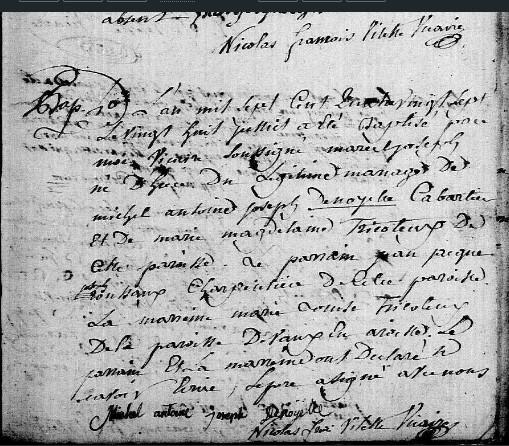 absent
Nicolas francois Vilette Vicaire
Bap. L'an mil sept Cent quatrevingt sept
Le vingt huit juillet a été Baptisé par
moi Vicaire soussigné marcel joseph
né D'hier Du Légitime mariage De
michel antoine joseph Denoyelle Cabartier
Et De marie magdelaine Tricoteux De
cette paroisse. Le parrain jean jacque
Charpentier de cette paroisse
La marreine marie Louise Tricoteux
De la paroisse De vaux En Le
parrain Et La marreine ont Declaré ne
scavoir Ecrire, le pere a signé avec nous
Michel antoine joseph Denoyelle
Nicolas Vilette Vicaire